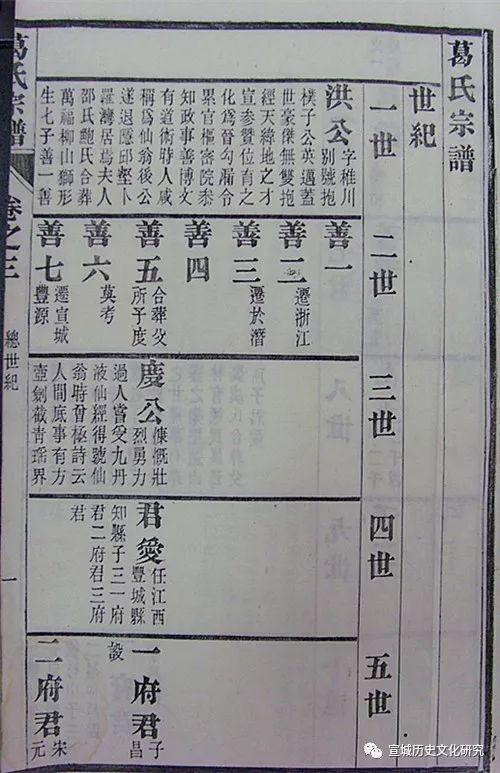 葛氏宗譜
世紀
一世
洪公
字稚川
別號抱
樸子公英邁蓋
世豪傑無雙抱
經天緯地之才
宣參贊位育之
化為晉勾漏令
累官樞密院叅
知政事善博文
有道術時人咸
稱為仙翁後公
遂退應邱壑卜
羅灣居焉夫人
邵氏鮑氏合葬
萬福柳山獅形
生七子善一善
二世
善一
善二
遷浙江
善三
遷於潛
善四
善五
合葬父
所子度
善六
莫考
善七
遷宣城
豐源
三世
慶公
慷慨壯
烈勇力
過人嘗受九丹
液仙經得號仙
翁時曾極詩云
人間底事有方
壺劍截青瑤界
四世
君愛
任江西
豐城縣
知縣子三一府
君二府君三府
君
五世
一府君
子
昌
設
二府君
宋
元
葛氏宗譜
卷之三
總世紀
一
宣城历史文化研究